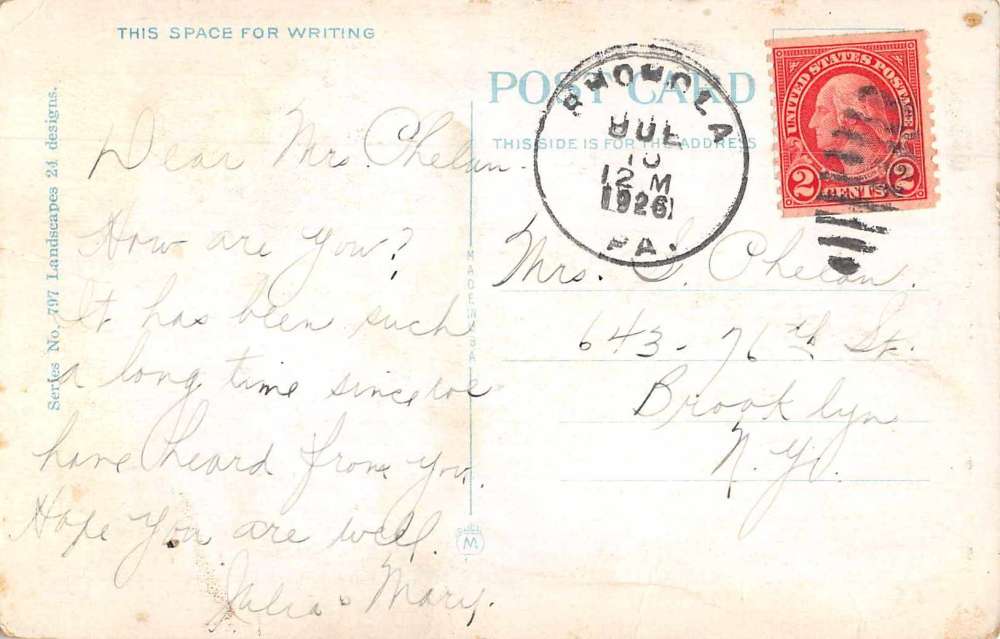 THIS SPACE FOR WRITING
Series No. 797 Landscapes 24 designs.
Dear Mrs. Phelan.
How are you?
It has been such
a long time since we
have heard from you.
Hope you are well.
Julia & Mary.
POST CARD
THIS SIDE IS FOR THE ADDRESS
MADE IN USA
M
PA.
12 M
1926
UNITED STATES POSTAGE
2 CENTS 2
Mrs. Phelan.
643 - 76th St.
Brooklyn
N.Y.